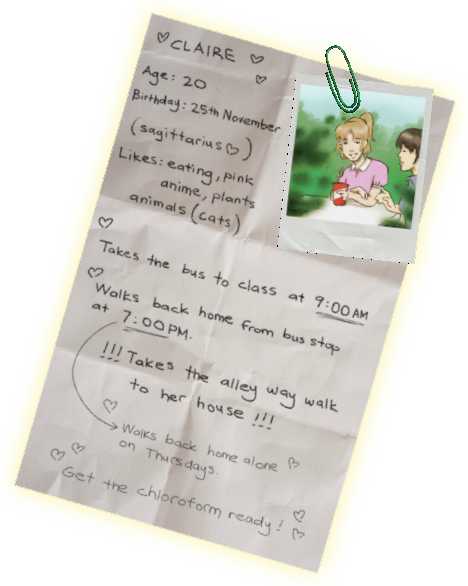 ♡ CLAIRE ♡
♡
Age: 20
Birthday: 25th November
(sagittarius♡)
Likes: eating, pink
anime, plants
animals (cats)
♡
Takes the bus to class at 9:00AM
♡
Walks back home from bus stop
at 7:00PM.
!!! Takes the alley way walk
to her house !!!
♡
Walks back home alone ♡
on Thursdays.
♡ ♡
Get the chloroform ready! ♡
♡